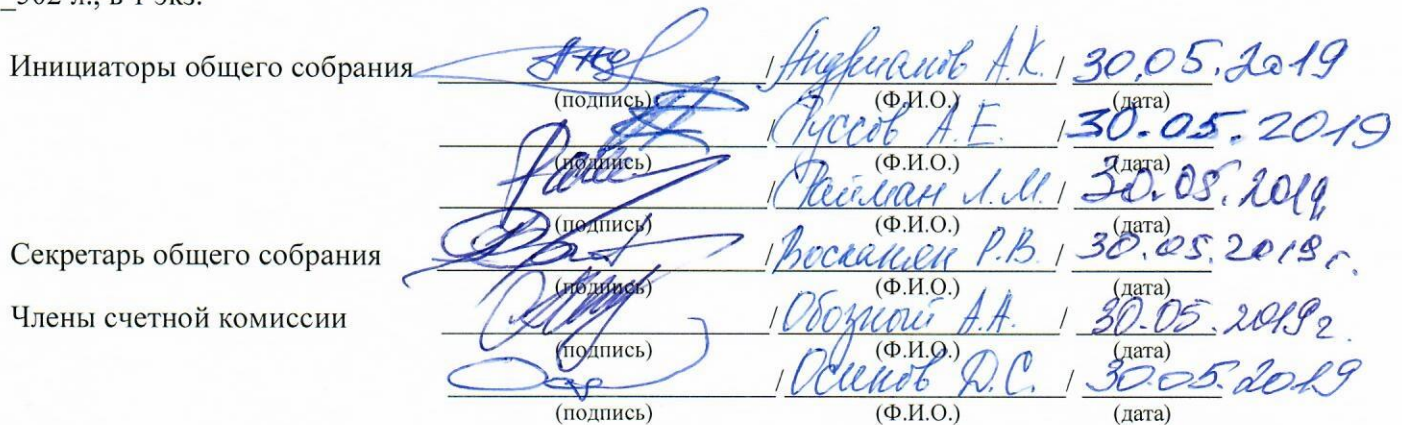 _502 л., в 1 экз.
Инициаторы общего собрания / Андрианов А.К. / 30.05.2019
(подпись) (Ф.И.О.) (дата)
/ Руссов А.Е. / 30.05.2019
(подпись) (Ф.И.О.) (дата)
/ Райман Л.М. / 30.05.2019
(подпись) (Ф.И.О.) (дата)
Секретарь общего собрания / Восканян Р.В. / 30.05.2019 г.
(подпись) (Ф.И.О.) (дата)
Члены счетной комиссии / Обозный А.А. / 30.05.2019 г
(подпись) (Ф.И.О.) (дата)
/ Осипов Д.С. / 30.05.2019
(подпись) (Ф.И.О.) (дата)